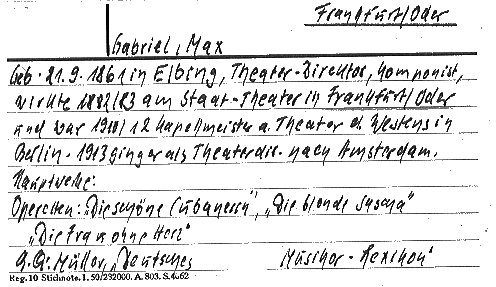 Frankfurt/Oder
Gabriel, Max
Geb. 21.9.1861 in Elbing, Theater-Direktor, Komponist,
wirkte 1882/83 am Stadt-Theater in Frankfurt/Oder
und war 1910/12 Kapellmeister a. Theater d. Westens in
Berlin. 1913 ging er als Theaterdir. nach Amsterdam.
Hauptwerke:
Operetten: "Die schöne Cubanerin", "Die blonde Susana"
"Die Frau ohne Herz"
Müller, "Deutsches Musiker-Lexikon"
Reg. 10 Stichnote. 1. 50/232000. A. 803. S. 4.62